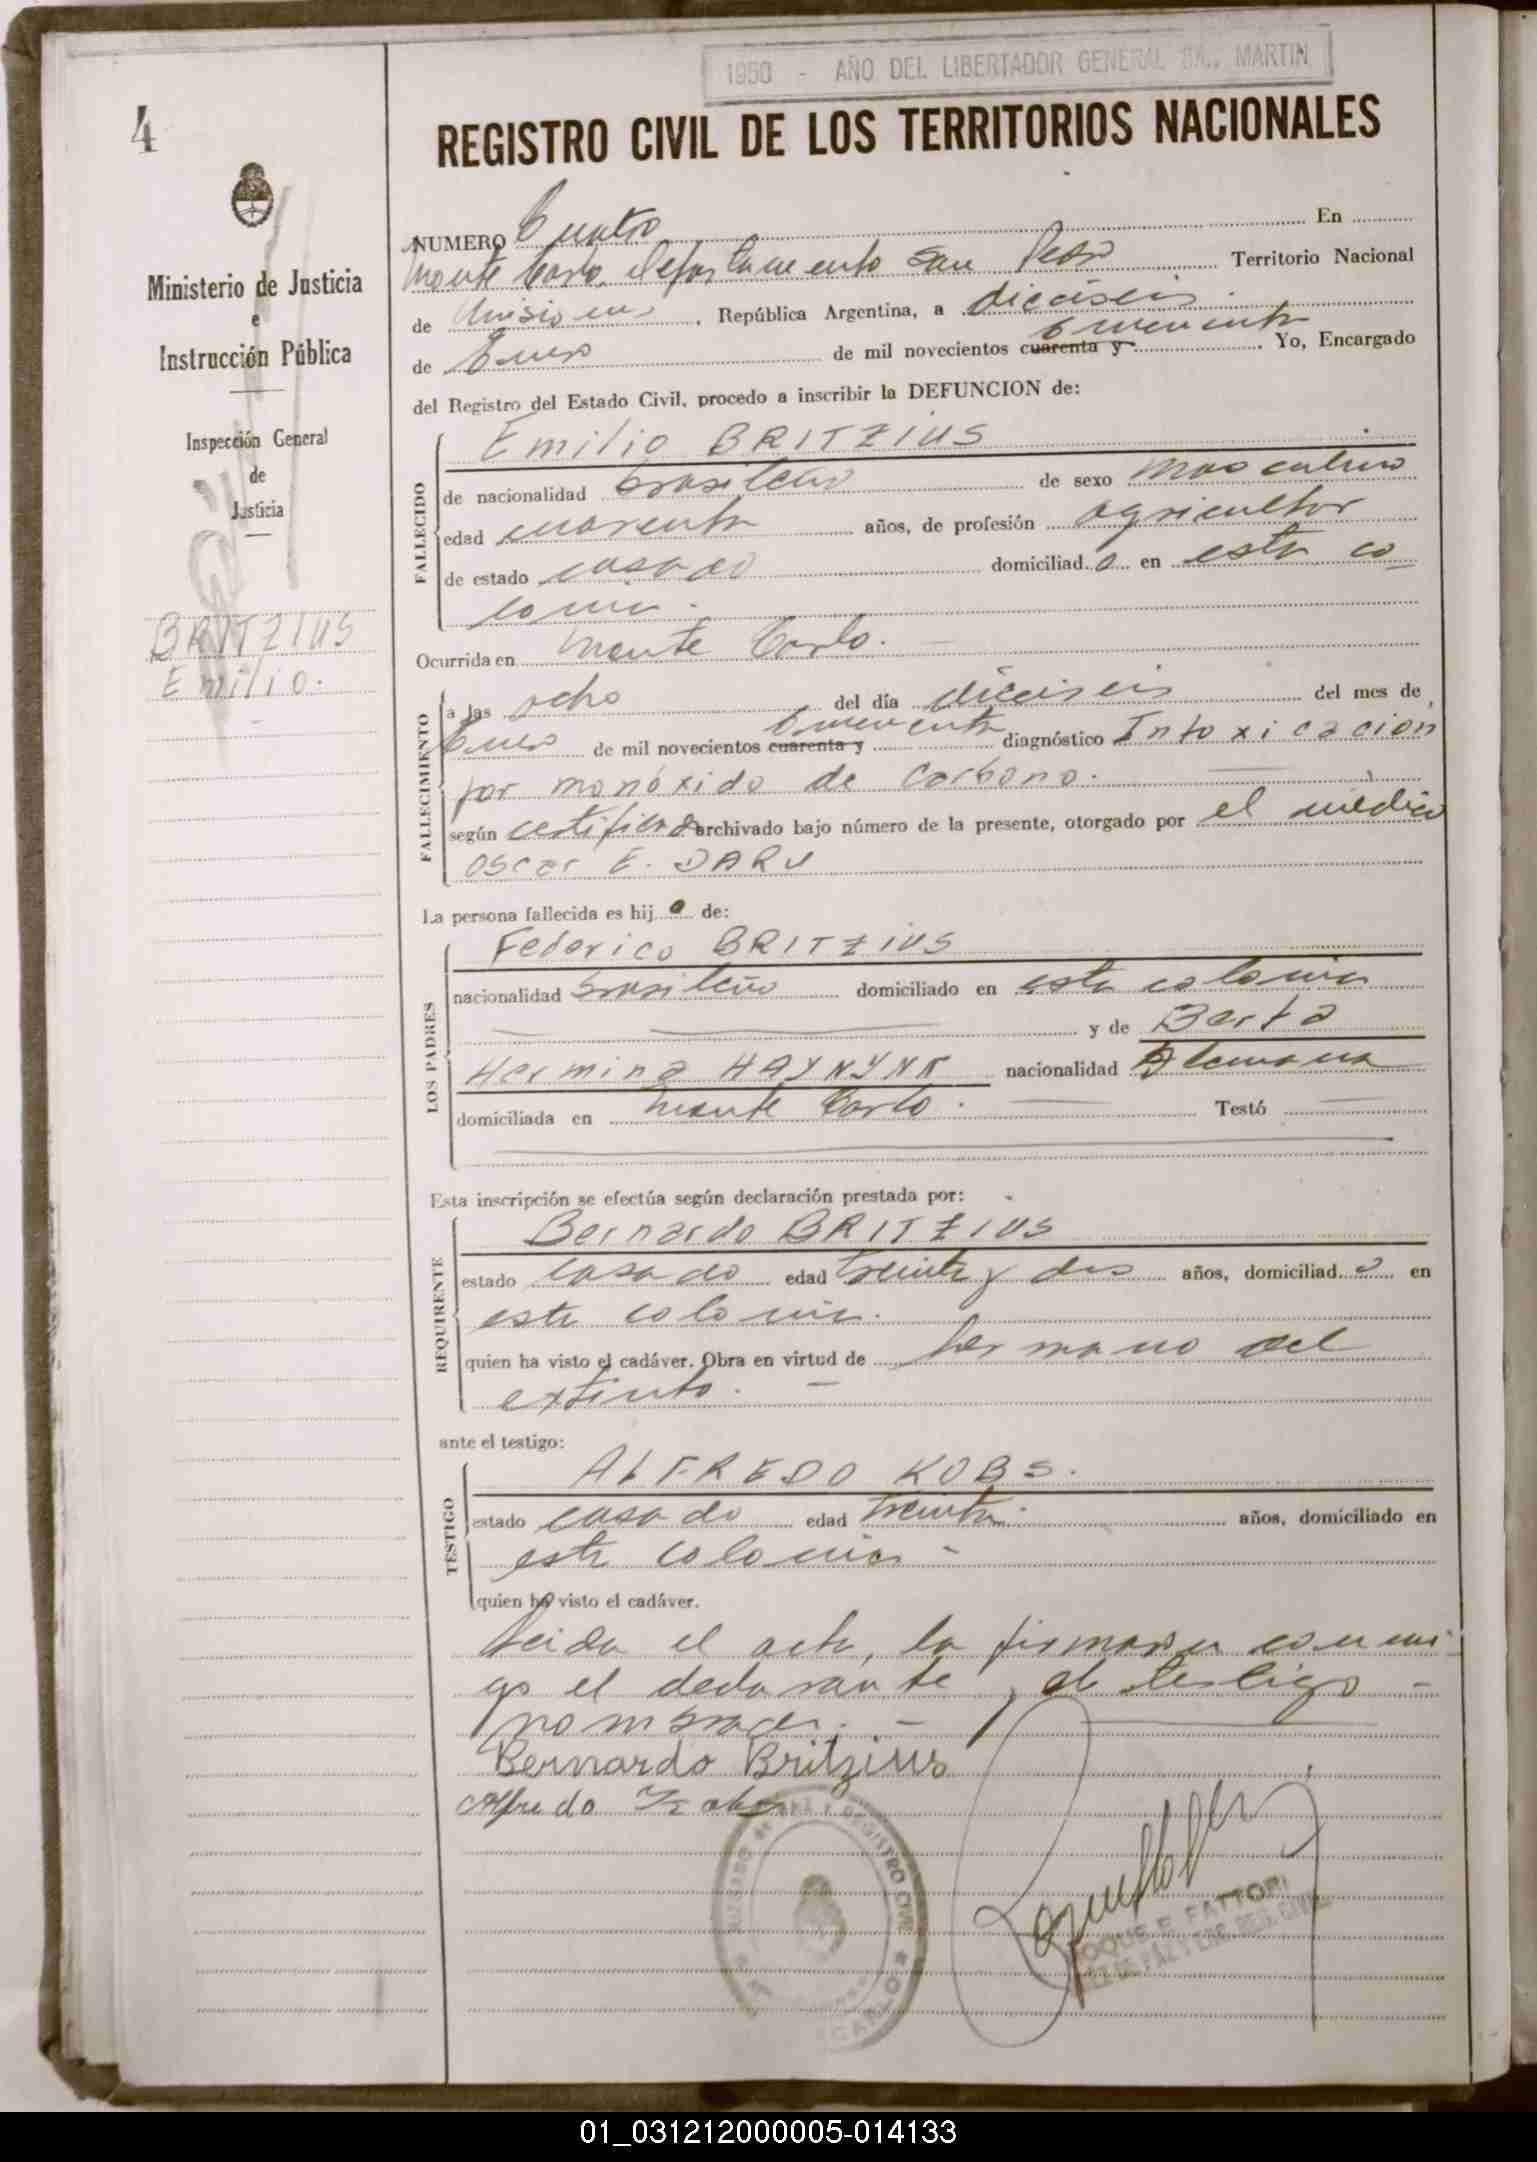 1950 - AÑO DEL LIBERTADOR GENERAL SAN MARTIN
4
REGISTRO CIVIL DE LOS TERRITORIOS NACIONALES
Ministerio de Justicia
e
Instrucción Pública
Inspección General
de
Justicia
BRITZIUS
Emilio.
NUMERO Cuatro En
Monte Carlo, departamento San Pedro Territorio Nacional
de Misiones, República Argentina, a dieciseis
de Enero de mil novecientos cuarenta y cincuenta. Yo, Encargado
del Registro del Estado Civil, procedo a inscribir la DEFUNCION de:
FALLECIDO
Emilio BRITZIUS
de nacionalidad brasileño de sexo masculino
edad cuarenta años, de profesión agricultor
de estado casado domiciliado en esta co
lonia.
Ocurrida en Monte Carlo.
FALLECIMIENTO
a las ocho del día dieciseis del mes de
Enero de mil novecientos cuarenta y cincuenta diagnóstico Intoxicación
por monóxido de Carbono.
según certificado archivado bajo número de la presente, otorgado por el médico
Oscar E. DARU
La persona fallecida es hijo de:
LOS PADRES
Federico BRITZIUS
nacionalidad brasileño domiciliado en esta colonia
y de Berta
Hermina nacionalidad Alemana
domiciliada en Monte Carlo. Testó
Esta inscripción se efectúa según declaración prestada por:
REQUIRENTE
Bernardo BRITZIUS
estado casado edad treinta y dos años, domiciliado en
esta colonia.
quien ha visto el cadáver. Obra en virtud de hermano del
extinto.
ante el testigo:
TESTIGO
ALFREDO KOBS.
estado casado edad treinta años, domiciliado en
esta colonia
quien ha visto el cadáver.
Leida el acta, la firmaron conmi
go el declarante y el testigo
nombrados.
Bernardo Britzius
Alfredo Kobs
JUZGADO DE PAZ Y REGISTRO CIVIL
CARLO
ROQUE E. FATTORI
JUEZ DE PAZ Y ENC. REG. CIVIL
01_031212000005-014133